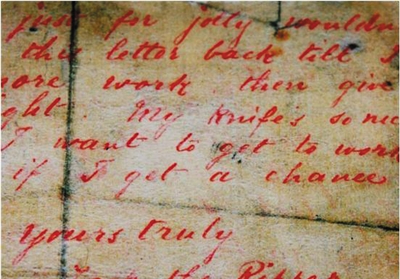 just for jolly wouldn
this letter back till I
more work then give
ght. My knife's so
I want to get to work
if I get a chance
yours truly
the Ripper